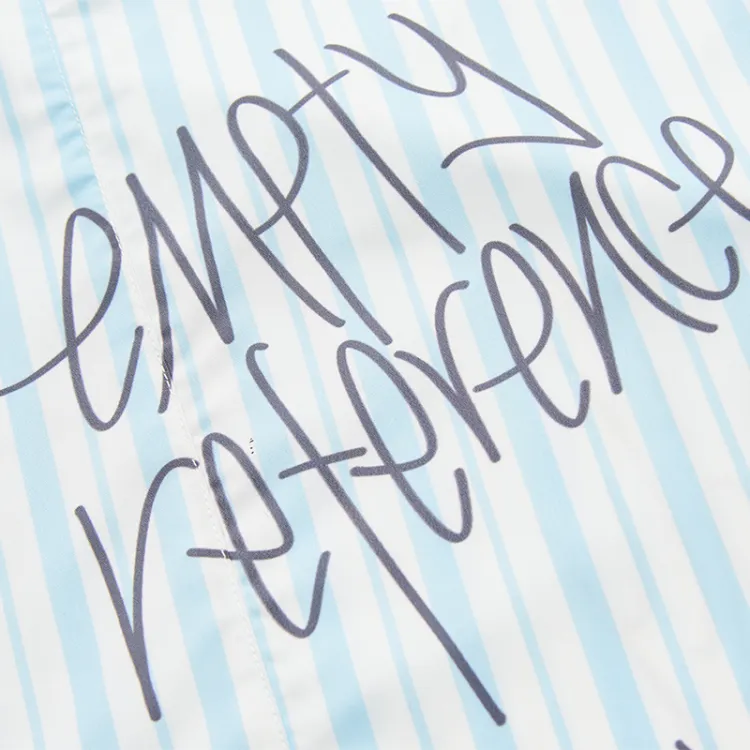 empty
reference